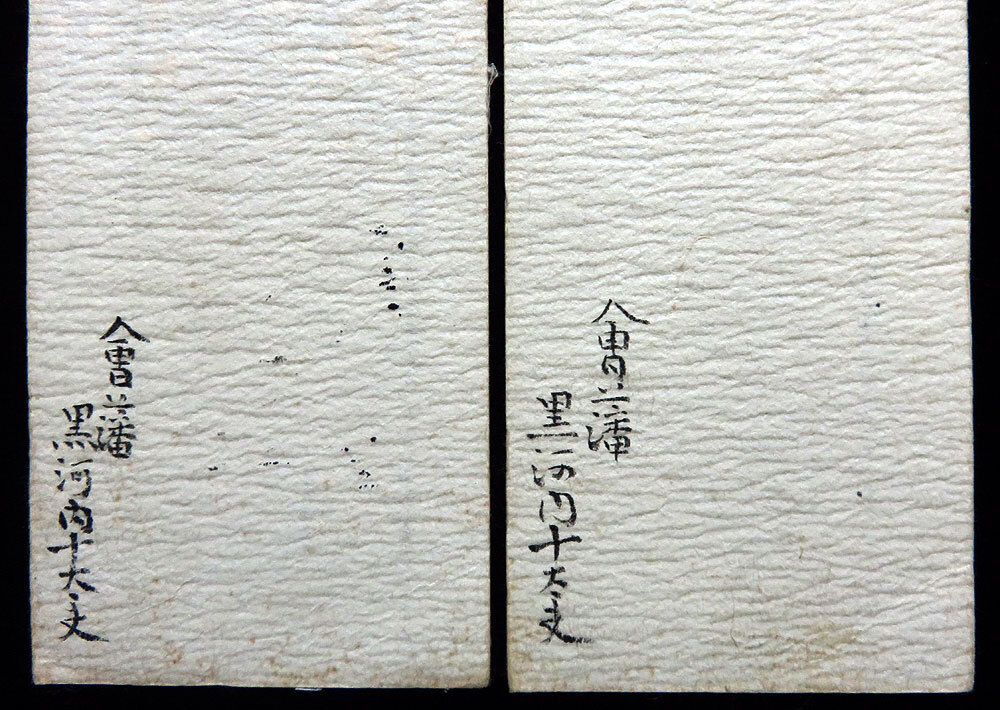 會藩
黒河内十太夫
會藩
黒河内十太夫